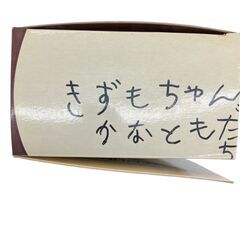 きずもちゃん
かなともだ
ち